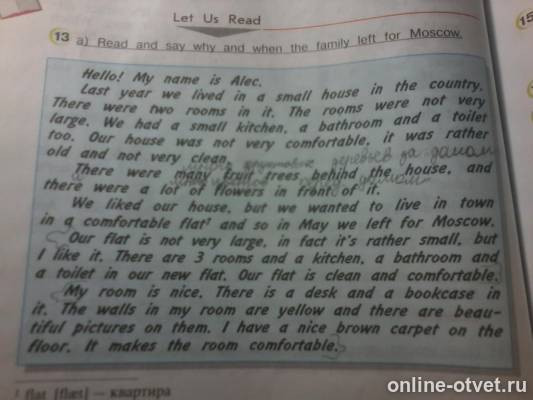 Let Us Read
13 a) Read and say why and when the family left for Moscow.
15
Hello! My name is Alec.
Last year we lived in a small house in the country.
There were two rooms in it. The rooms were not very
large. We had a small kitchen, a bathroom and a toilet
too. Our house was not very comfortable, it was rather
old and not very clean.
деревьев за домом
There were many fruit trees behind the house, and
there were a lot of flowers in front of it.
We liked our house, but we wanted to live in town
in a comfortable flat¹ and so in May we left for Moscow.
Our flat is not very large, in fact it's rather small, but
I like it. There are 3 rooms and a kitchen, a bathroom and
a toilet in our new flat. Our flat is clean and comfortable.
My room is nice. There is a desk and a bookcase in
it. The walls in my room are yellow and there are beau-
tiful pictures on them. I have a nice brown carpet on the
floor. It makes the room comfortable.
¹ flat [flæt] — квартира
online-otvet.ru